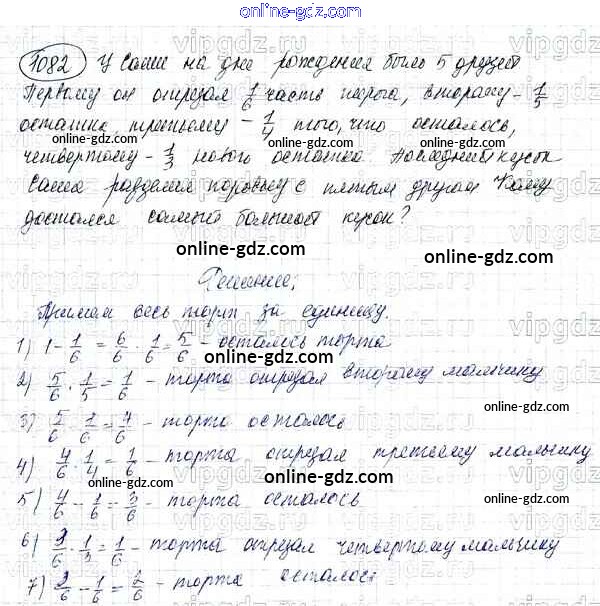 online-gdz.com
1082) У Саши на дне рождения было 5 друзей
Первому он отрезал 1/6 часть пирога, второму - 1/5
остатка, третьему - 1/4 того, что осталось,
четвертому - 1/3 нового остатка. Последний кусок
Саша разделил поровну с пятым другом Кому
достался самый большой кусок?
online-gdz.com
online-gdz.com
Решение:
online-gdz.com
Примем весь торт за единицу.
1) 1 - 1/6 = 6/6 · 1/6 = 5/6 - осталось торта
online-gdz.com
2) 5/6 · 1/5 = 1/6 - торта отрезал второму мальчику
online-gdz.com
3) 5/6 - 1/6 = 4/6 - торта осталось
online-gdz.com
4) 4/6 · 1/4 = 1/6 - торта отрезал третьему мальчику
5) 4/6 - 1/6 = 3/6 - торта осталось
online-gdz.com
6) 3/6 · 1/3 = 1/6 - торта отрезал четвертому мальчику
7) 3/6 - 1/6 = 2/6 - торта осталось
online-gdz.com